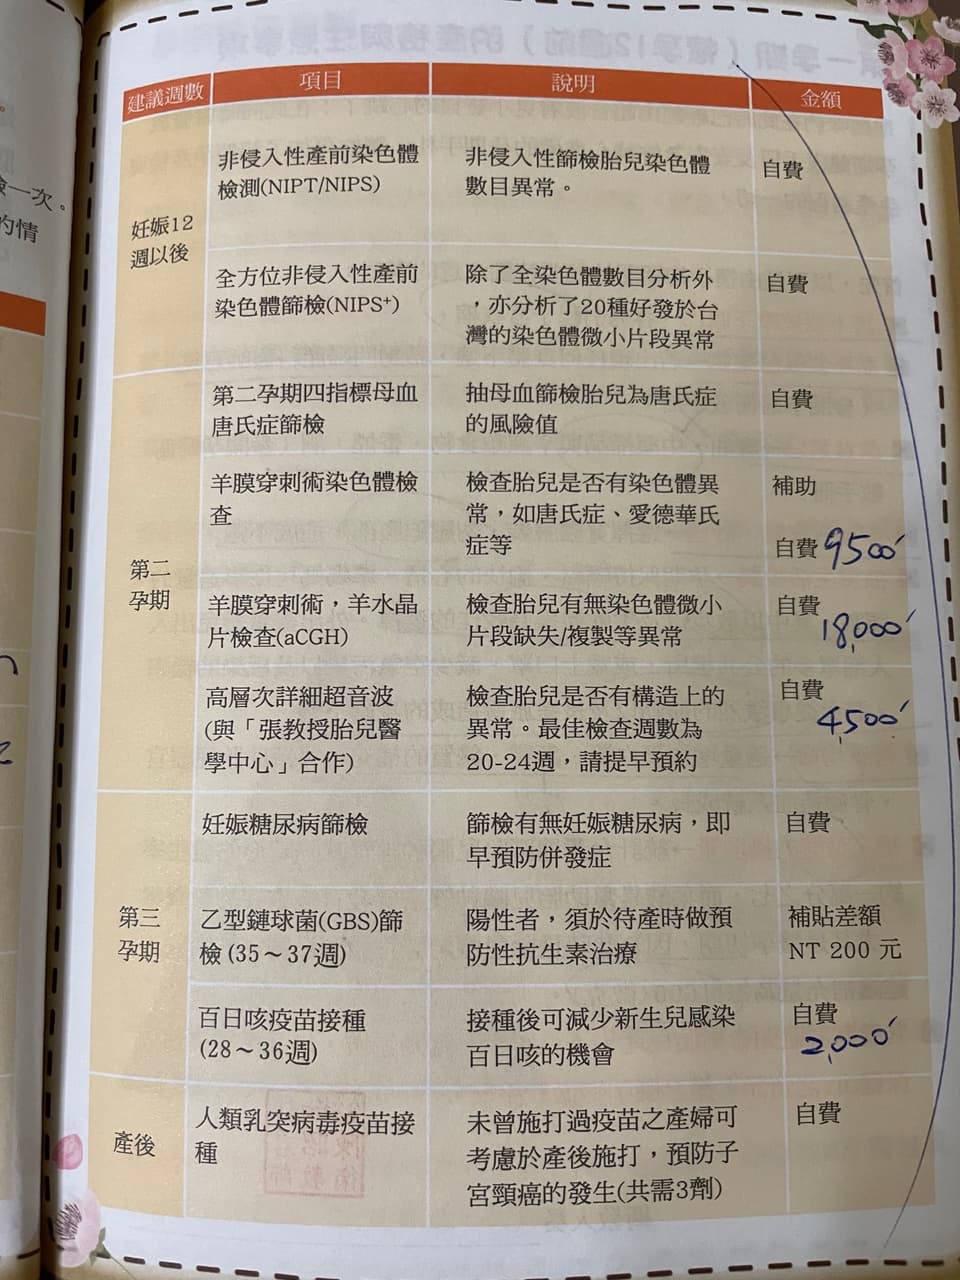 建議週數 項目 說明 金額
妊娠12
週以後
非侵入性產前染色體
檢測(NIPT/NIPS)
非侵入性篩檢胎兒染色體
數目異常。
自費
全方位非侵入性產前
染色體篩檢(NIPS⁺)
除了全染色體數目分析外
，亦分析了20種好發於台
灣的染色體微小片段異常
自費
第二
孕期
第二孕期四指標母血
唐氏症篩檢
抽母血篩檢胎兒為唐氏症
的風險值
自費
羊膜穿刺術染色體檢
查
檢查胎兒是否有染色體異
常，如唐氏症、愛德華氏
症等
補助
自費 9500
羊膜穿刺術，羊水晶
片檢查(aCGH)
檢查胎兒有無染色體微小
片段缺失/複製等異常
自費
18,000
高層次詳細超音波
(與「張教授胎兒醫
學中心」合作)
檢查胎兒是否有構造上的
異常。最佳檢查週數為
20-24週，請提早預約
自費
4,500
第三
孕期
妊娠糖尿病篩檢
篩檢有無妊娠糖尿病，即
早預防併發症
自費
乙型鏈球菌(GBS)篩
檢 (35～37週)
陽性者，須於待產時做預
防性抗生素治療
補貼差額
NT 200 元
百日咳疫苗接種
(28～36週)
接種後可減少新生兒感染
百日咳的機會
自費
2,000
產後
人類乳突病毒疫苗接
種
未曾施打過疫苗之產婦可
考慮於產後施打，預防子
宮頸癌的發生(共需3劑)
自費
一次。
的情